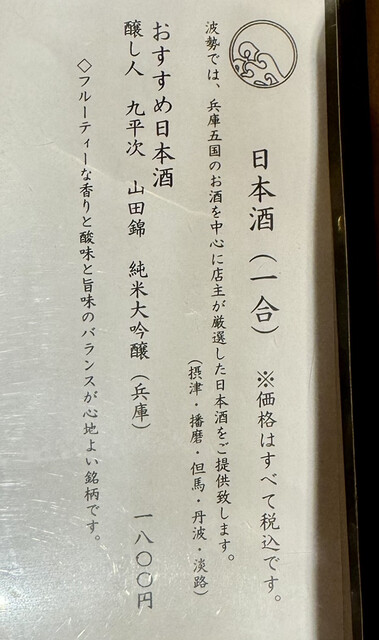 日本酒（一合）　※価格はすべて税込です。
波勢では、兵庫五国のお酒を中心に店主が厳選した日本酒をご提供致します。
（摂津・播磨・但馬・丹波・淡路）
おすすめ日本酒
醸し人　九平次　山田錦　純米大吟醸（兵庫）　一八〇〇円
◇フルーティーな香りと酸味と旨味のバランスが心地よい銘柄です。